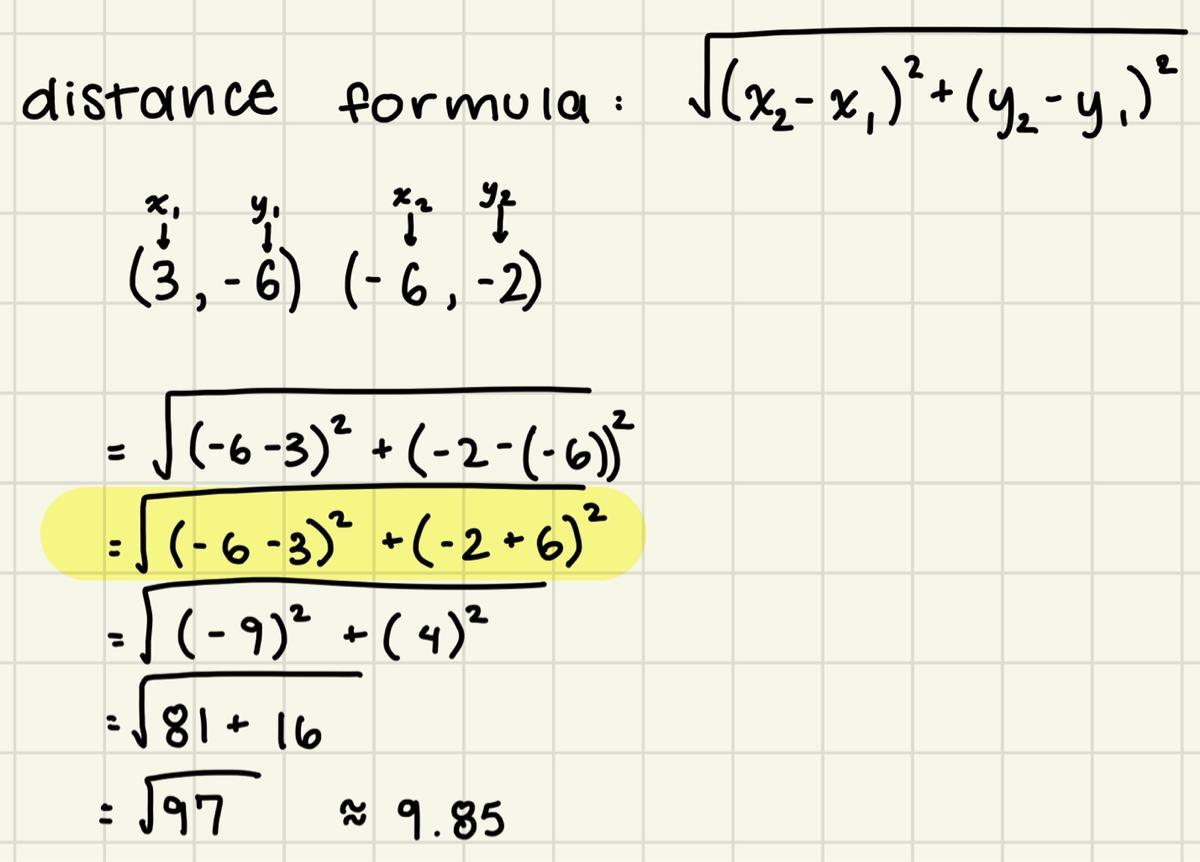 distance formula: √(x₂-x₁)²+(y₂-y₁)²
x₁ y₁ x₂ y₂
↓ ↓ ↓ ↓
(3,-6) (-6,-2)
= √(-6-3)² + (-2-(-6))²
= √(-6-3)² + (-2+6)²
= √(-9)² + (4)²
= √81 + 16
= √97 ≈ 9.85